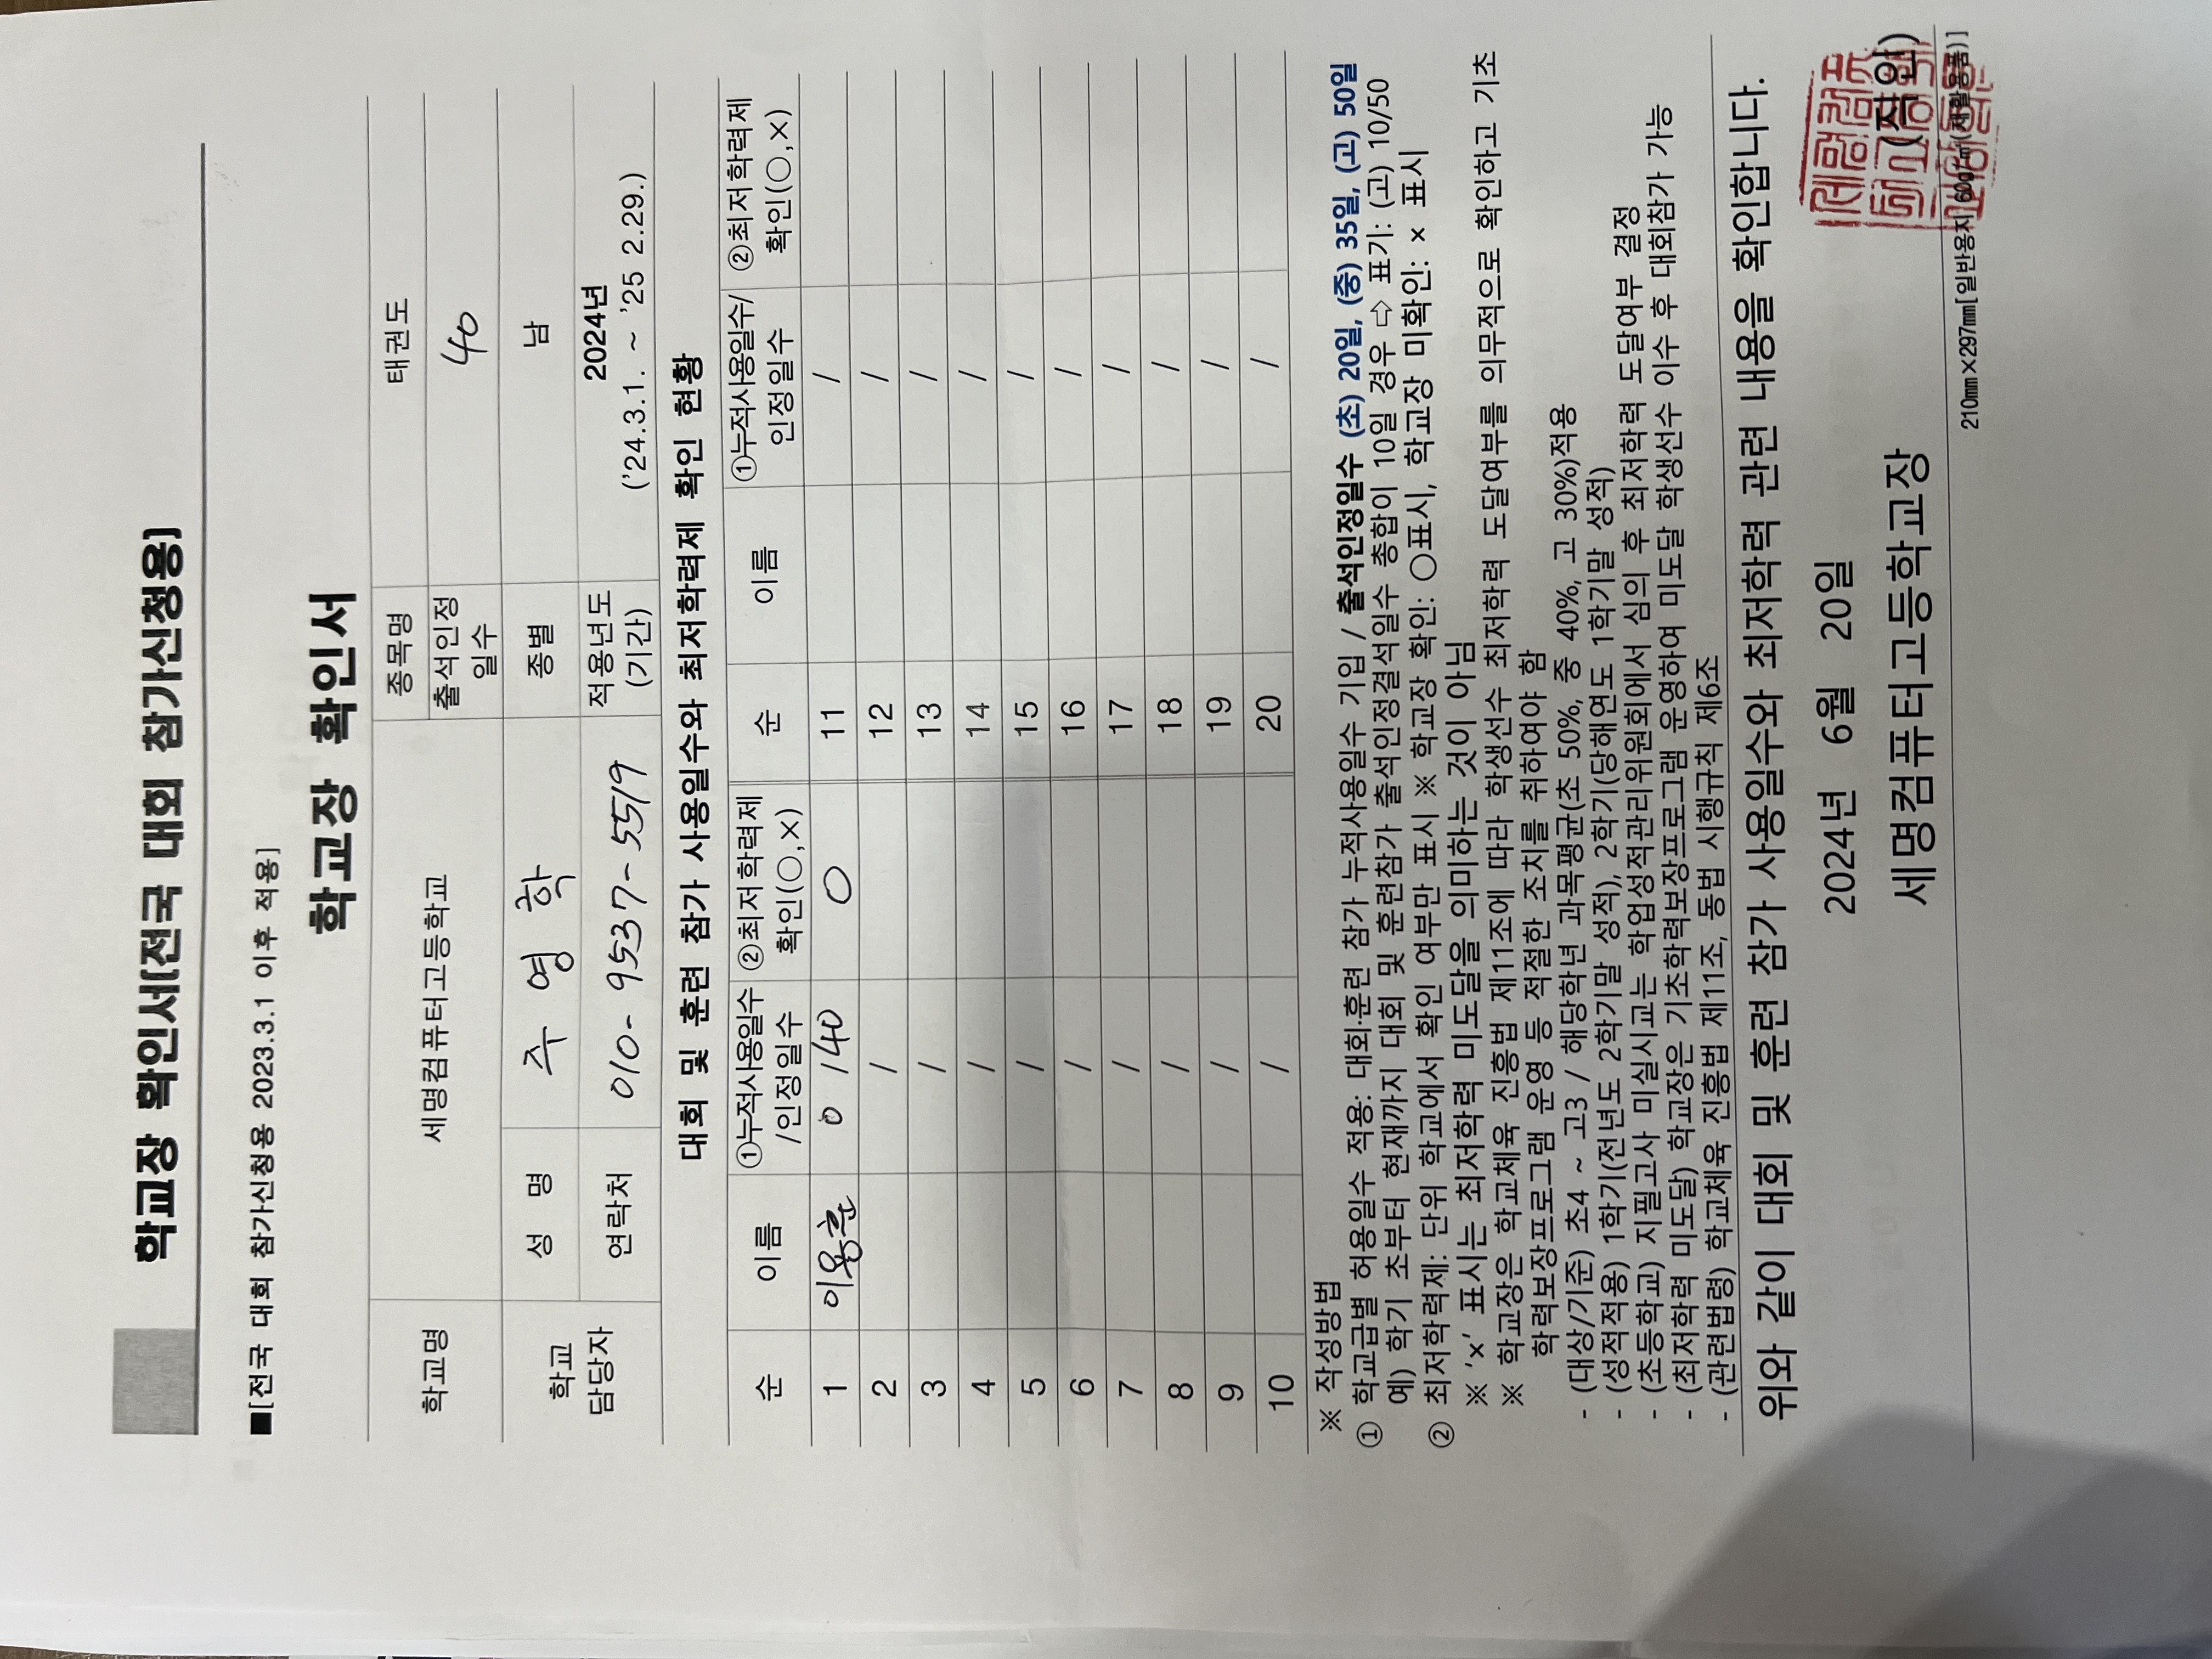 학교장 확인서[전국 대회 참가신청용]
■[전국 대회 참가신청용 2023.3.1 이후 적용]
학교장 확인서
학교명 세명컴퓨터고등학교 종목명 태권도
출석인정일수 40
학교 담당자 성 명 주 영 학 종별 남
연락처 010-9537-5519 적용년도 (기간) 2024년 ('24.3.1. ~ '25 2.29.)
대회 및 훈련 참가 사용일수와 최저학력제 확인 현황
순 이름 ①누적사용일수/인정일수 ②최저학력제 확인(○,×) 순 이름 ①누적사용일수/인정일수 ②최저학력제 확인(○,×)
1 이용훈 0 /40 ○ 11 /
2 / 12 /
3 / 13 /
4 / 14 /
5 / 15 /
6 / 16 /
7 / 17 /
8 / 18 /
9 / 19 /
10 / 20 /
※ 작성방법
① 학교급별 허용일수 적용: 대회·훈련 참가 누적사용일수 기입 / 출석인정일수 (초) 20일, (중) 35일, (고) 50일
예) 학기 초부터 현재까지 대회 및 훈련참가 출석인정결석일수 총합이 10일 경우 ⇨ 표기: (고) 10/50
② 최저학력제: 단위 학교에서 확인 여부만 표시 ※ 학교장 확인: ○표시, 학교장 미확인: × 표시
※ '×' 표시는 최저학력 미도달을 의미하는 것이 아님
※ 학교장은 학교체육 진흥법 제11조에 따라 학생선수 최저학력 도달여부를 의무적으로 확인하고 기초
학력보장프로그램 운영 등 적절한 조치를 취하여야 함
- (대상/기준) 초4 ~ 고3 / 해당학년 과목평균(초 50%, 중 40%, 고 30%)적용
- (성적적용) 1학기(전년도 2학기말 성적), 2학기(당해연도 1학기말 성적)
- (초등학교) 지필고사 미실시교는 학업성적관리위원회에서 심의 후 최저학력 도달여부 결정
- (최저학력 미도달) 학교장은 기초학력보장프로그램 운영하여 미도달 학생선수 이수 후 대회참가 가능
- (관련법령) 학교체육 진흥법 제11조, 동법 시행규칙 제6조
위와 같이 대회 및 훈련 참가 사용일수와 최저학력 관련 내용을 확인합니다.
2024년 6월 20일
세명컴퓨터고등학교장 (직인)
210㎜×297㎜[일반용지 60g/㎡(재활용품)]